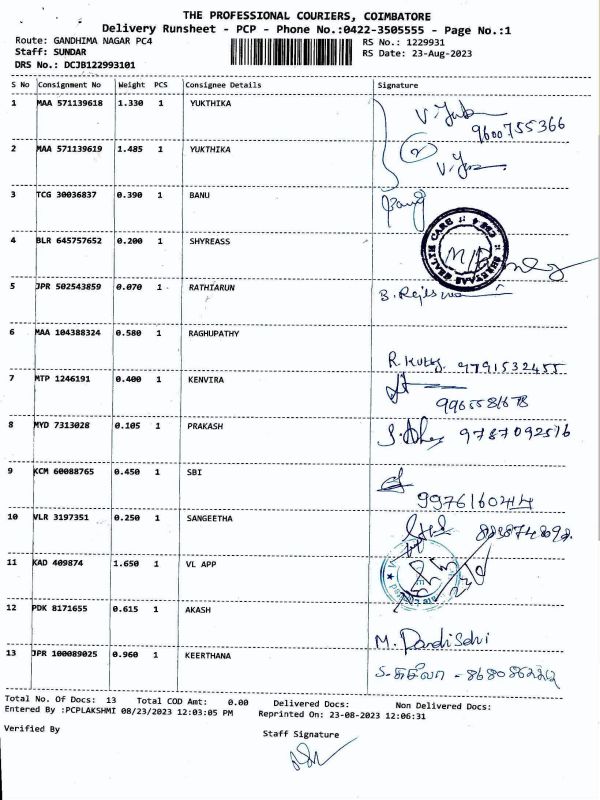 THE PROFESSIONAL COURIERS, COIMBATORE
Delivery Runsheet - PCP - Phone No.:0422-3505555 - Page No.:1
Route: GANDHIMA NAGAR PC4 RS No.: 1229931
Staff: SUNDAR RS Date: 23-Aug-2023
DRS No.: DCJB122993101
S No Consignment No Weight PCS Consignee Details Signature
1 MAA 571139618 1.330 1 YUKTHIKA
9600755366
2 MAA 571139619 1.485 1 YUKTHIKA
3 TCG 30036837 0.390 1 BANU
4 BLR 645757652 0.200 1 SHYREASS
5 JPR 502543859 0.070 1 RATHIARUN
6 MAA 104388324 0.580 1 RAGHUPATHY
9791532455
7 MTP 1246191 0.400 1 KENVIRA
8 MYD 7313028 0.105 1 PRAKASH 9787092516
9 KCM 60088765 0.450 1 SBI
10 VLR 3197351 0.250 1 SANGEETHA
11 KAD 409874 1.650 1 VL APP
12 PDK 8171655 0.615 1 AKASH
13 JPR 100089025 0.960 1 KEERTHANA
Total No. Of Docs: 13 Total COD Amt: 0.00 Delivered Docs: Non Delivered Docs:
Entered By :PCPLAKSHMI 08/23/2023 12:03:05 PM Reprinted On: 23-08-2023 12:06:31
Verified By Staff Signature